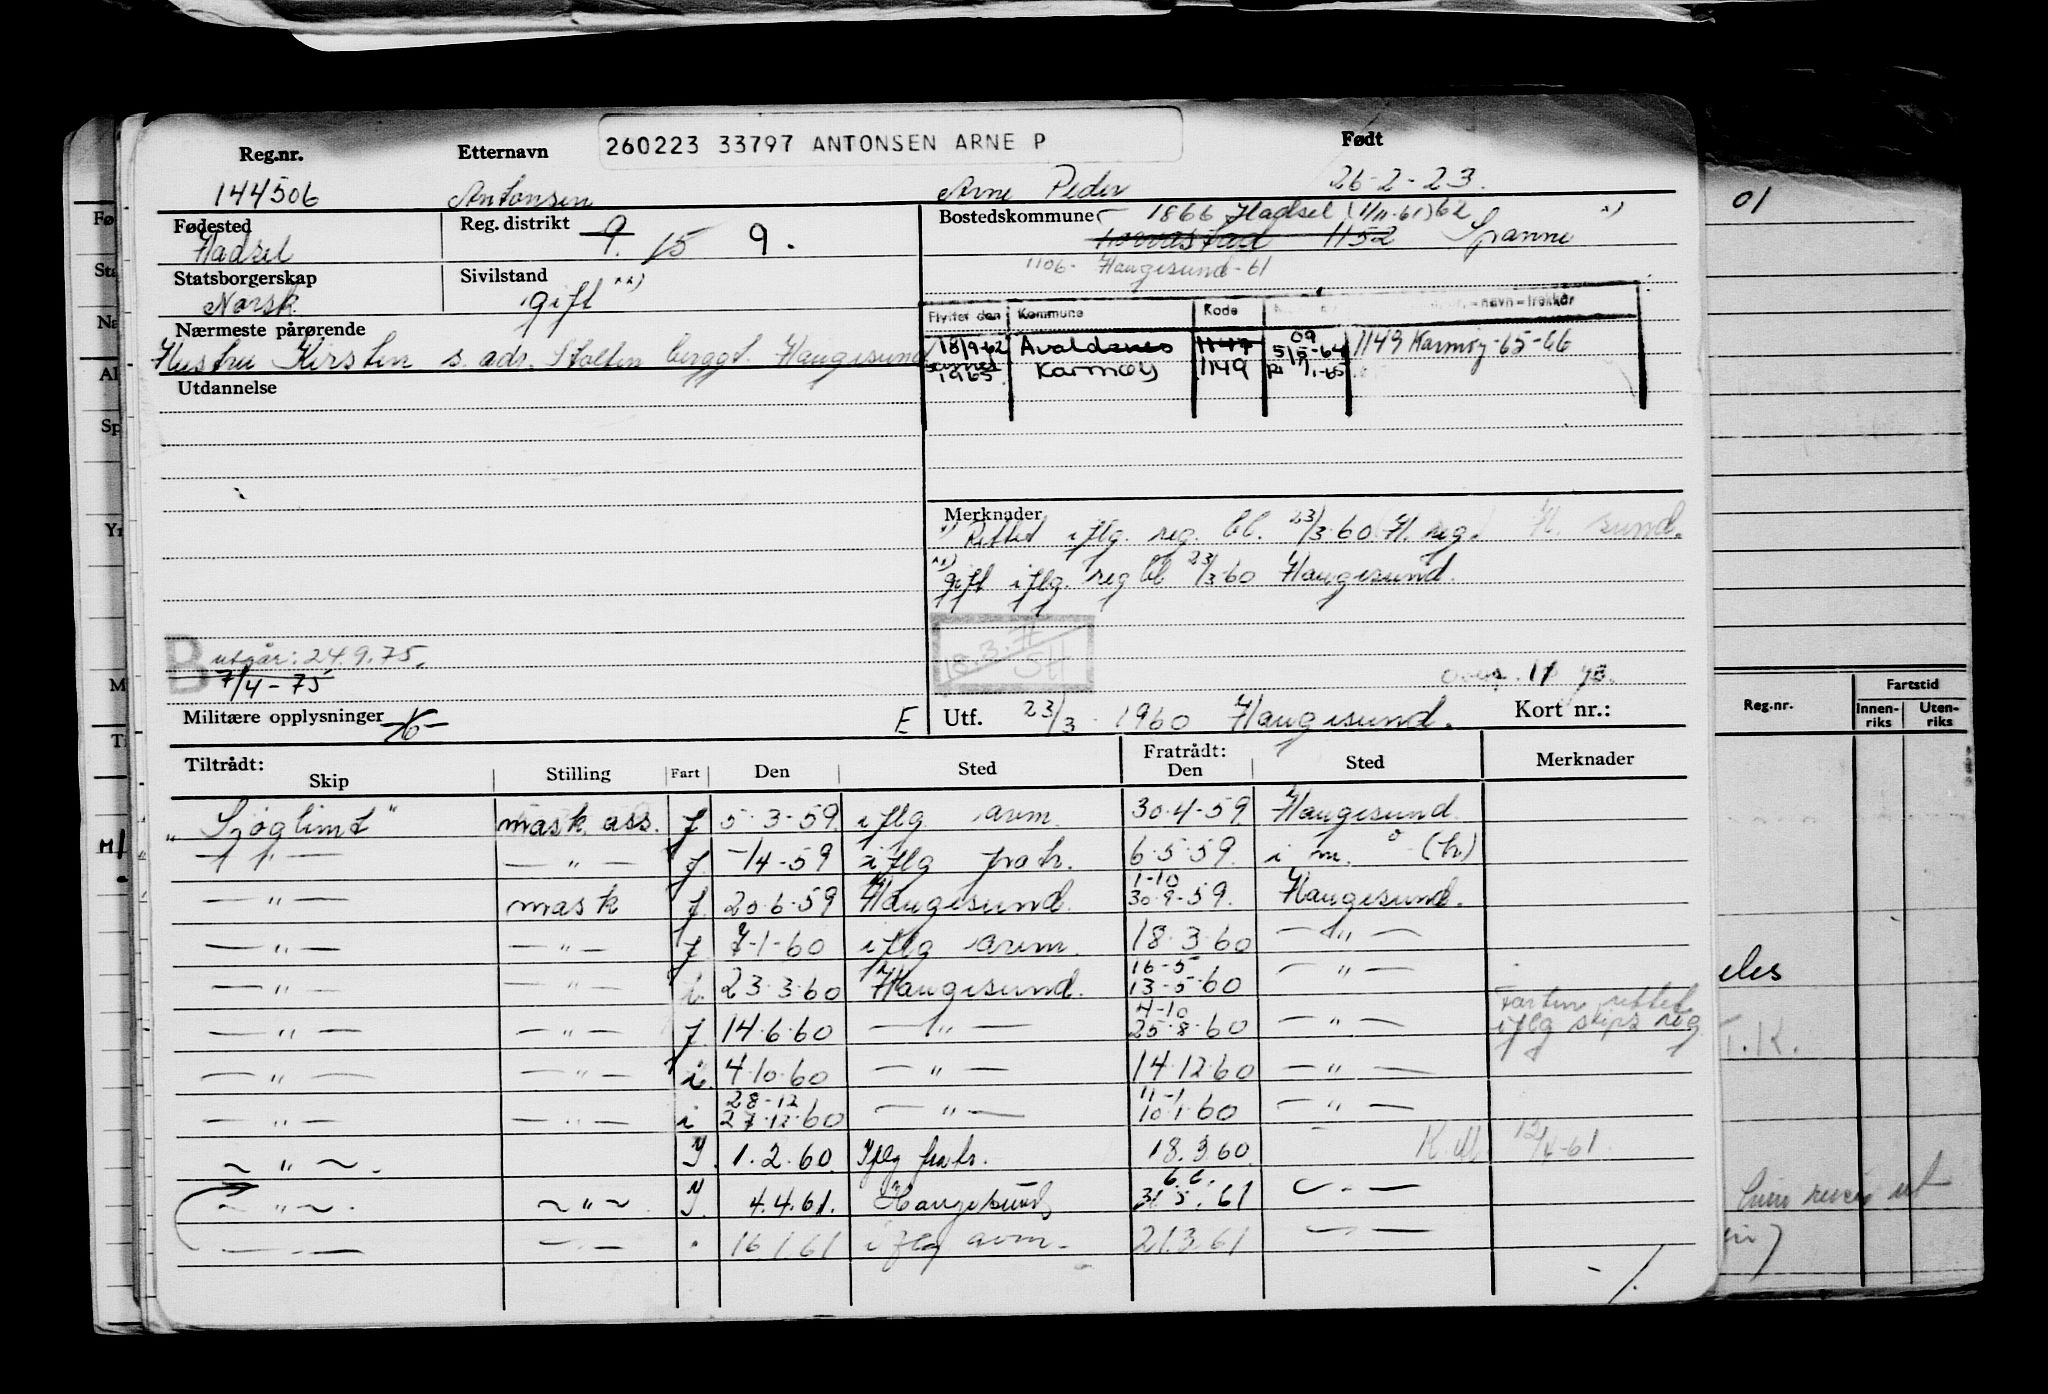 260223 33797 ANTONSEN ARNE P
Reg.nr. Etternavn Født
144506 Antonsen Arne Peder 26-2-23.
Fødested Reg. distrikt 9. 15 9. Bostedskommune 1866 Hadsel (1/11-61) 62 x)
Hadsel 1152 Spanne
1106- Haugesund-61
Statsborgerskap Sivilstand xx)
Norsk gift
Flyttet den Kommune Kode -navn-trekker
Nærmeste pårørende
Hustru Kirsten s. adr. Stolten berggt. Haugesund
18/9-62 Avaldsnes 1147 09 5/5-64 1149 Karmøy-65-66
1965 Karmøy 1149 1-65
Utdannelse
Merknader
x) Rettet iflg. reg. bl. 23/3-60 H. reg. H. sund.
xx) gift iflg. reg bl 23/3-60 Haugesund.
B utgår: 24.9.75.
7/4-75
18.3.
SH
Militære opplysninger E Utf. 23/3-1960 Haugesund. Kort nr.:
Tiltrådt: Fratrådt:
Skip Stilling Fart Den Sted Den Sted Merknader
"Sjøglimt" mask ass. f 5-3-59 iflg avm. 30-4-59 Haugesund
— " — — " — f. -/4-59 iflg frak. 6-5-59. i m.
— " — mask f. 20-6-59 Haugesund. 1-10 30-9-59. Haugesund.
— " — — " — f. 7-1-60 iflg avm. 18.3.60 — " —
— " — — " — i. 23.3.60 Haugesund. 16-5 13-5-60 — " —
— " — — " — f. 14.6.60 — " — 4-10 25.8.60 — " — Farten rettet iflg skips reg
— " — — " — i. 4.10.60 — " — 14.12.60 — " —
— " — — " — i 28-12 27.12.60 — " — 11-1 10.1.60 — " —
~ " ~. 1.2.60 Iflg frak. 18.3.60 12/4-61
~ " ~. ~ " ~. 4.4.61. Haugesund 6.6. 31.5.61 — " —
— " — — " — " 16.1.61 iflg avm. 21.3.61 — " —
01
Reg.nr. Fartstid
Innenriks Utenriks
eles
T.K.